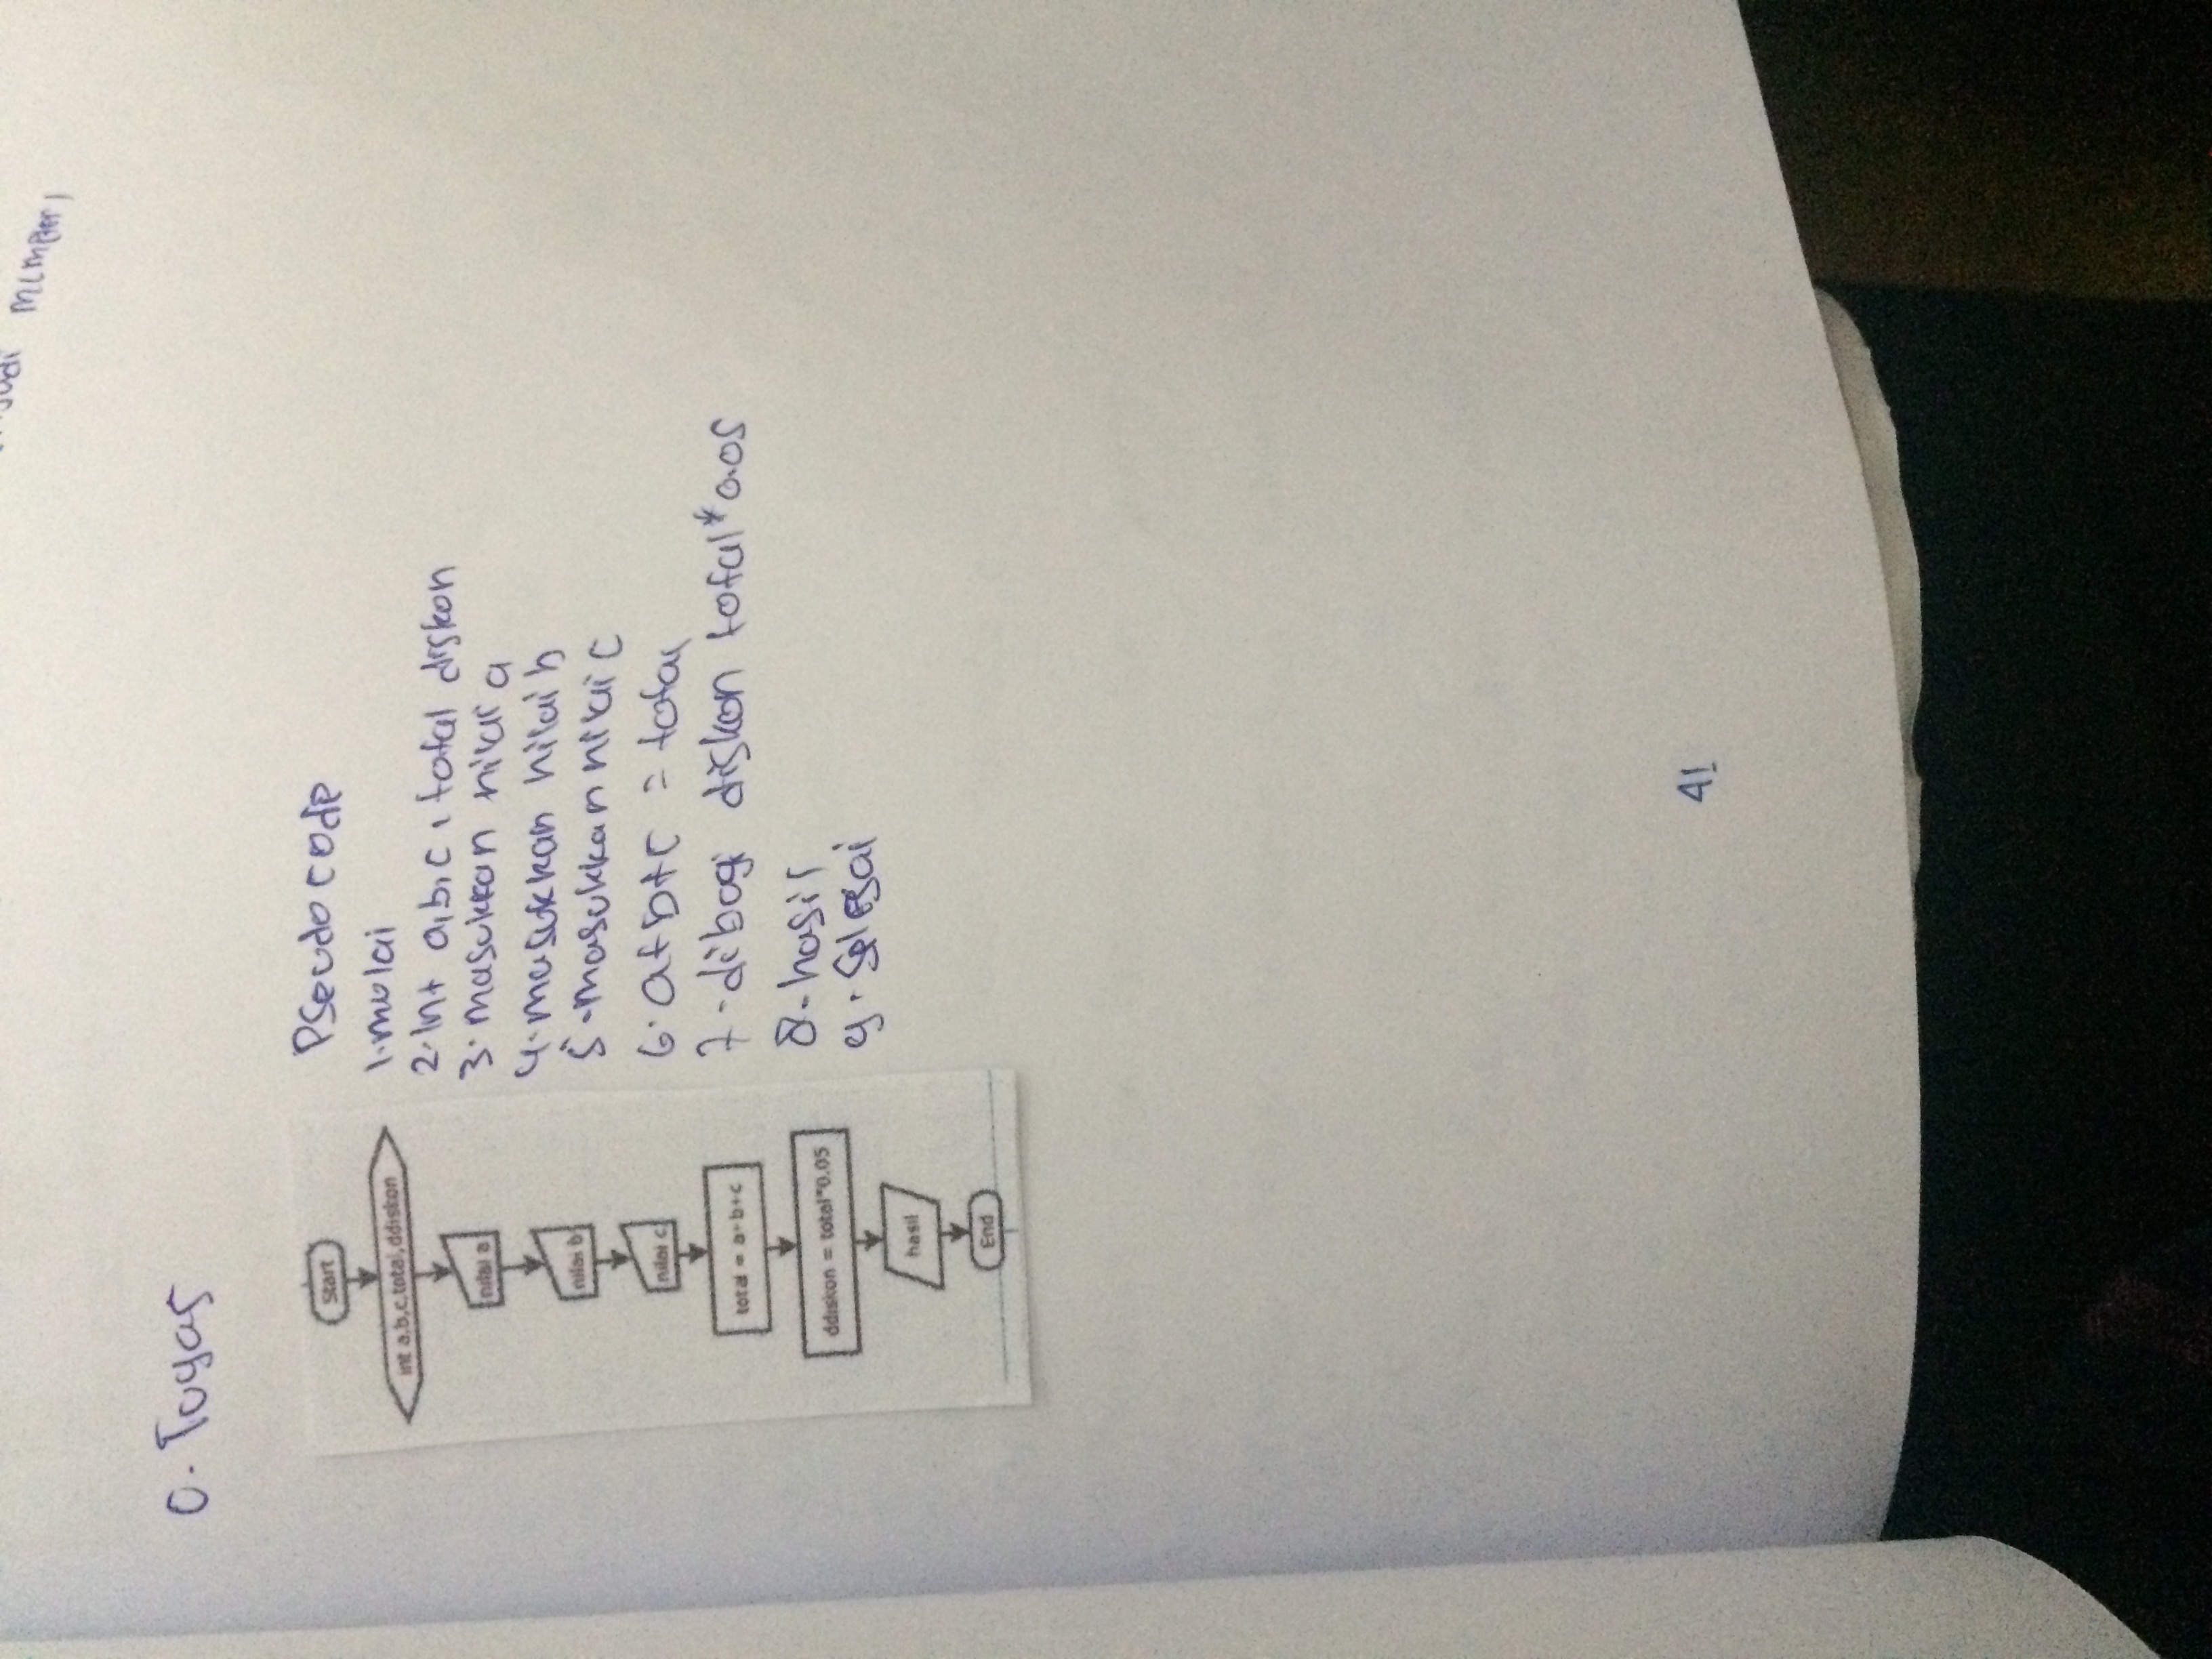 C. Tugas
Start
int a,b,c,total,ddiskon
nilai a
nilai b
nilai c
total = a+b+c
ddiskon = total*0.05
hasil
End
Pseudo code
1. mulai
2. Int a, b, c, total diskon
3. masukkan nilai a
4. masukkan nilai b
5. masukkan nilai c
6. a+b+c = total
7. dibagi diskon total*0.05
8. hasil
9. Selesai
41